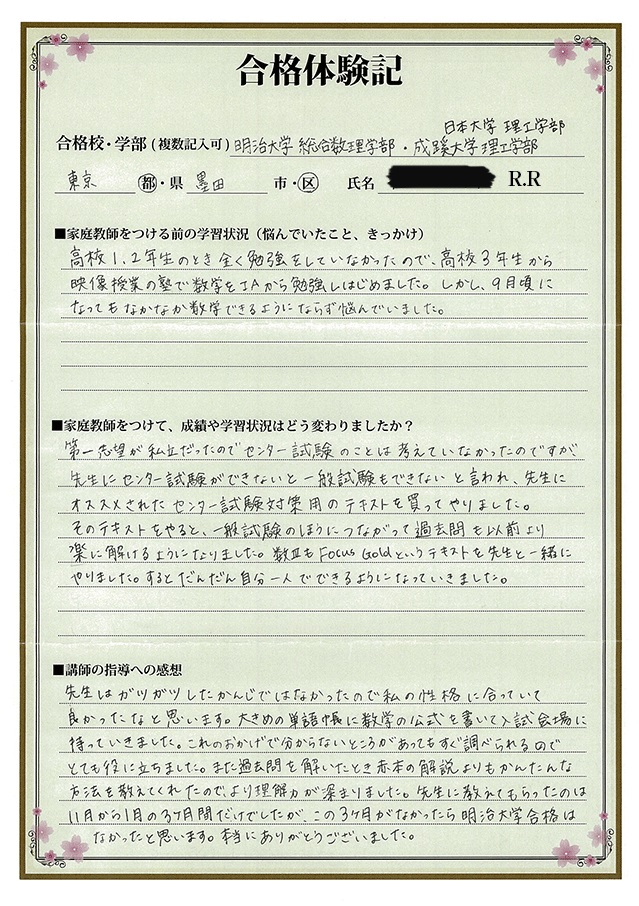 合格体験記
日本大学 理工学部
合格校・学部(複数記入可) 明治大学 総合数理学部・成蹊大学 理工学部
東京 都・県 墨田 市・区 氏名 R.R
■家庭教師をつける前の学習状況（悩んでいたこと、きっかけ）
高校1.2年生のとき全く勉強をしていなかったので、高校3年生から
映像授業の塾で数学をIAから勉強しはじめました。しかし、9月頃に
なってもなかなか数学できるようにならず悩んでいました。
■家庭教師をつけて、成績や学習状況はどう変わりましたか？
第一志望が私立だったのでセンター試験のことは考えていなかったのですが
先生にセンター試験ができないと一般試験もできないと言われ、先生に
オススメされたセンター試験対策用のテキストを買ってやりました。
そのテキストをやると、一般試験のほうにつながって過去問も以前より
楽に解けるようになりました。数Ⅲも Focus Goldというテキストを先生と一緒に
やりました。するとだんだん自分一人でできるようになっていきました。
■講師の指導への感想
先生はガツガツしたかんじではなかったので私の性格に合っていて
良かったなと思います。大きめの単語帳に数学の公式を書いて入試会場に
持っていきました。これのおかげで分からないところがあってもすぐ調べられるので
とても役に立ちました。また過去問を解いたとき赤本の解説よりもかんたんな
方法を教えてくれたので、より理解力が深まりました。先生に教えてもらったのは
11月から1月の3ヶ月間だけでしたが、この3ヶ月がなかったら明治大学合格は
なかったと思います。本当にありがとうございました。